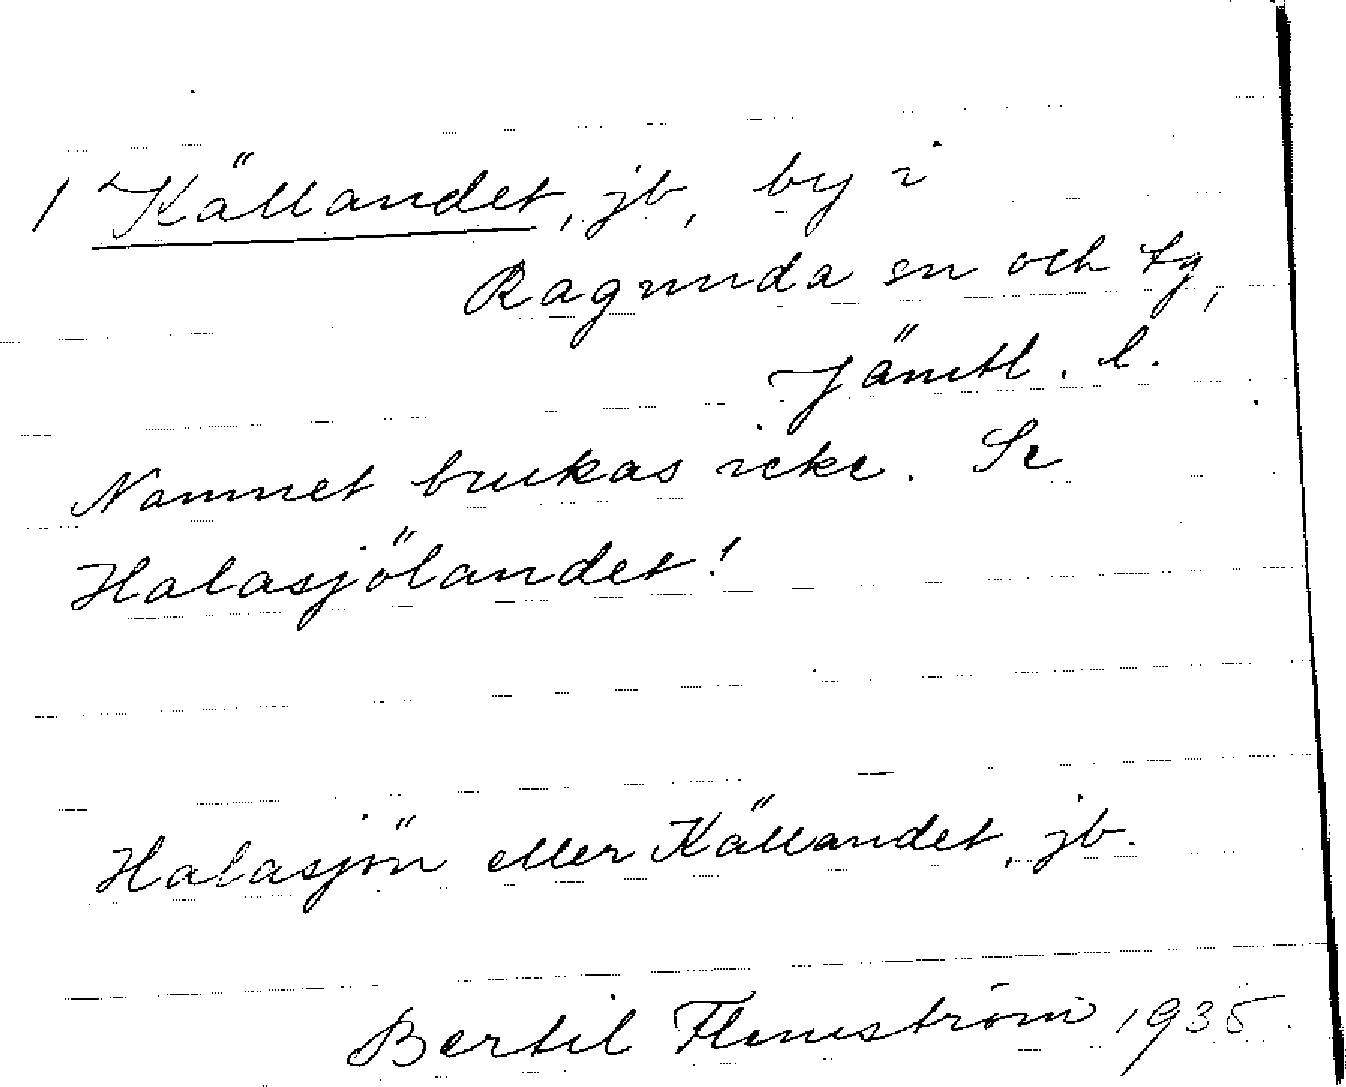 1 Källandet, jb, by i
Ragunda sn och tg,
Jämtl. l.
Namnet brukas icke. Se
Halasjölandet!
Halasjön eller Källandet, jb.
Bertil Flemström 1935.